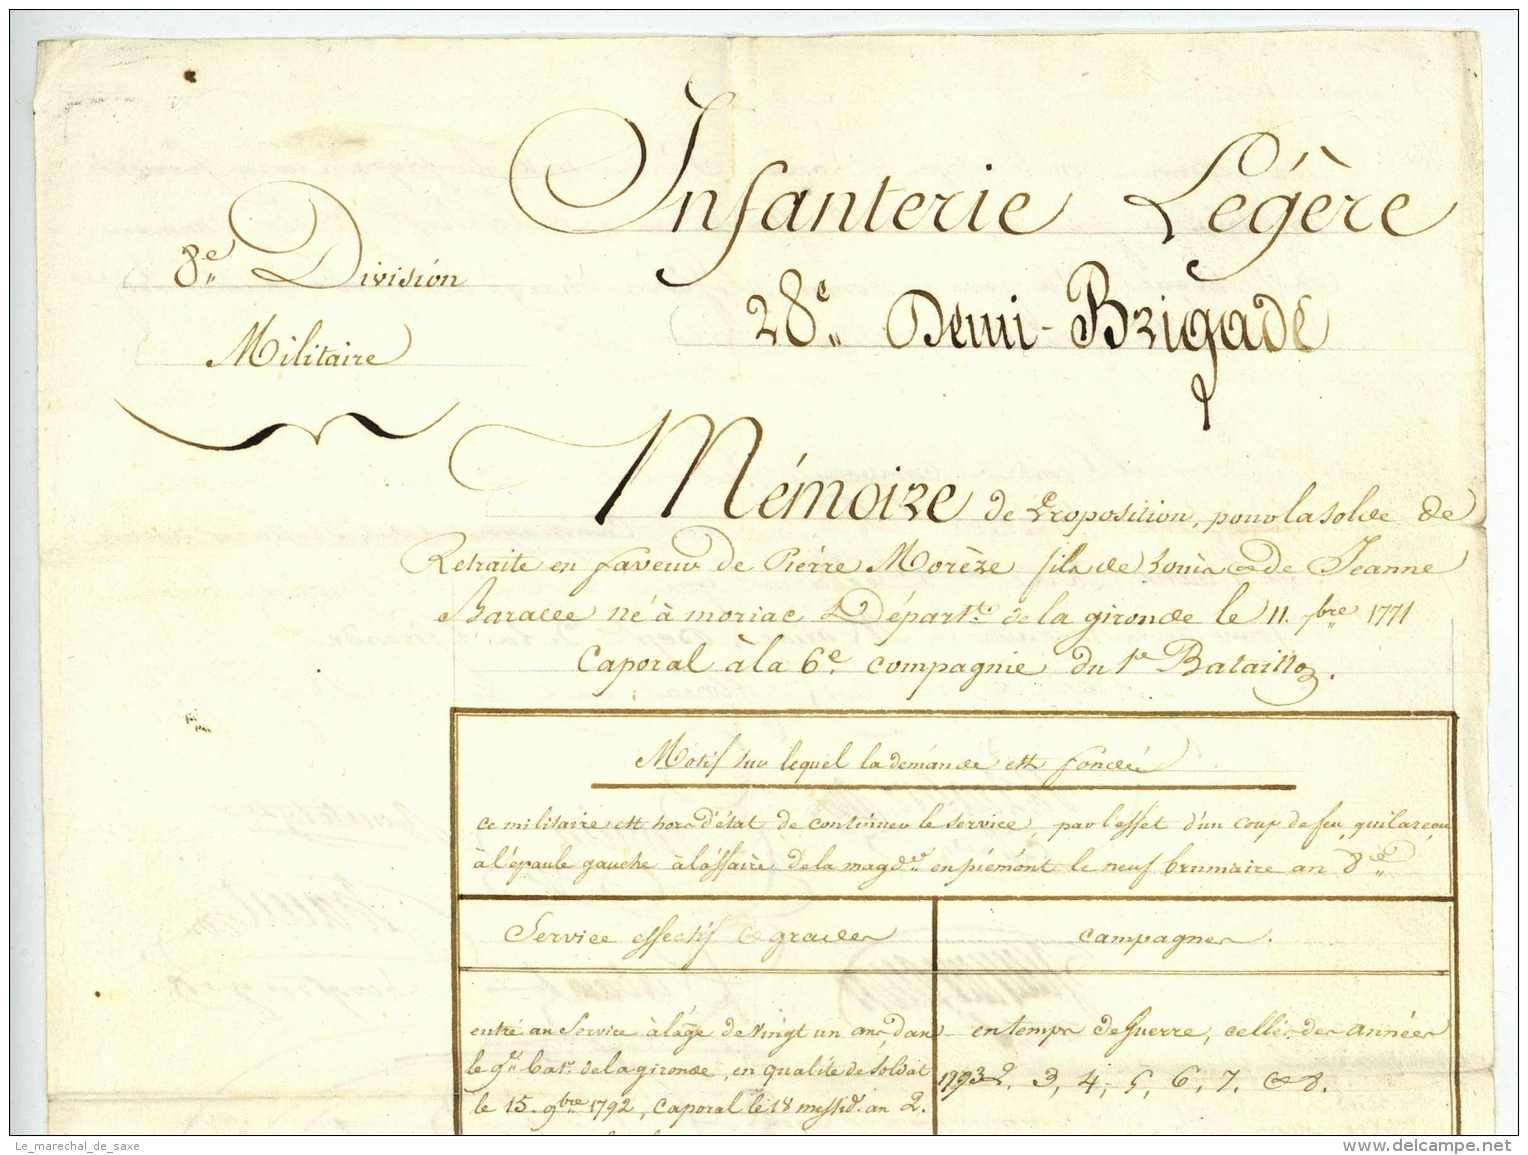 Infanterie Légère
8e. Division
Militaire
28e. Demi-Brigade
Mémoire de Proposition, pour la solde de
Retraite en faveur de Pierre Morèze fils de Louis & de Jeanne
Baracée né à moriac Départt. de la gironde le 11. 7bre 1771
Caporal à la 6e. compagnie du 1er Bataillon.
Motif sur lequel la demande est fondée
ce militaire est hors d'état de continuer le service, par l'effet d'un coup de feu, qu'il a reçu
à l'épaule gauche à l'affaire de la magdne. en piémont le neuf brumaire an 8e.
Service effectif & grades
campagnes.
entré au Service à l'age de vingt un ans, dans
le 9e. bat. de la gironde, en qualité de soldat
le 15. 9bre 1792, caporal le 18 messid. an 2.
en temps de guerre, celles des années
1793 2. 3, 4, 5, 6, 7. & 8.
Le_marechal_de_saxe
www.delcampe.net